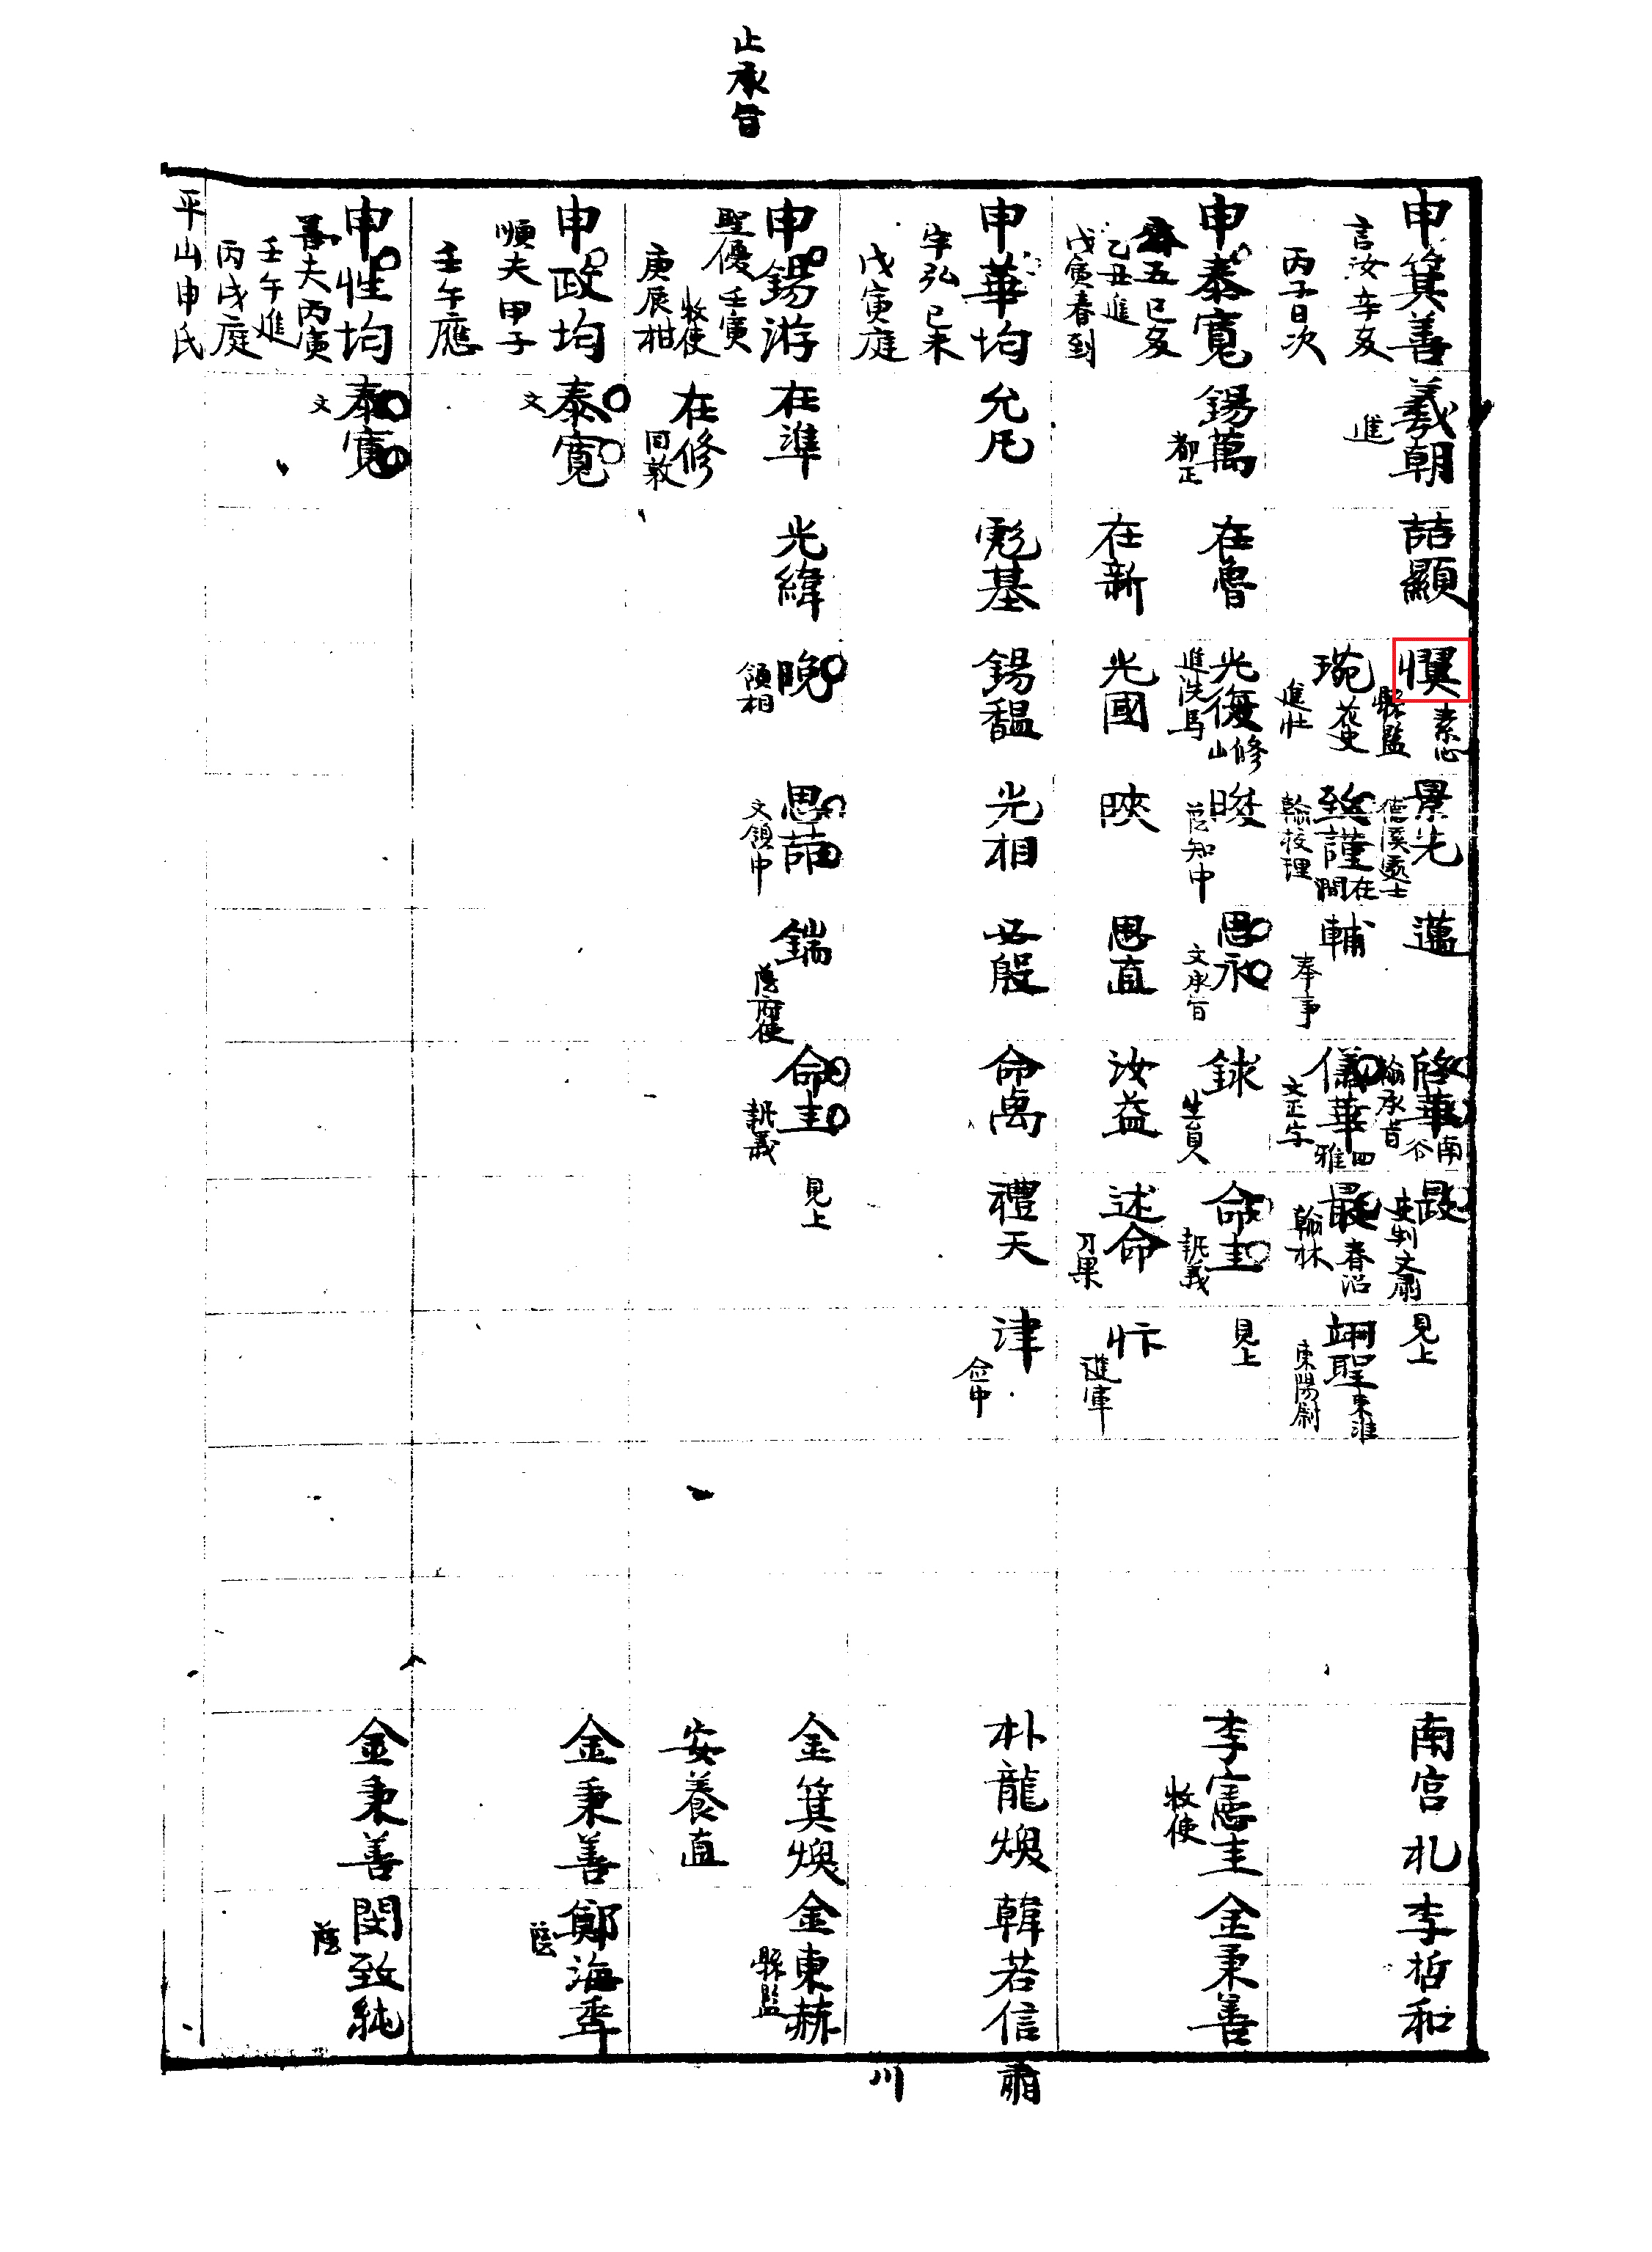 止承旨
申箕善
言汝辛亥
丙子日次
羲朝
進
喆顯
素心
縣監
琬
荻史
進壯
景先
德溪處士
致謹
在澗
翰校理
邁
輔
奉事
啓華
南谷
翰承旨
儀華
四雅
文正字
晸
吏判文肅
最
春沼
翰林
見上
翊聖
東淮
東陽尉
南宮札
李哲和
申泰寬
五己亥
乙丑進
戊寅春到
錫萬
都正
在魯
在新
光復
修山
進洗馬
光國
晙
蔭知中
映
思永
文承旨
思直
銶
生員
汝益
命圭
執義
述命
刀果
見上
忭
進庫
李憲圭
牧使
金秉善
申華均
字弘己未
戊寅庭
允凡
彪基
錫馧
光相
必殷
命禹
禮天
津
僉中
朴龍煥
韓若信
申錫游
聖優壬寅
牧使
庚辰柑
在準
在修
同敦
光緯
晩
領相
思喆
文領中
鍴
蔭府使
命圭
執義
見上
金箕煥
安養直
金東赫
縣監
申政均
順夫甲子
壬午應
泰寬
文
金秉善
鄭海季
蔭
申性均
善夫丙寅
壬午進
丙戌庭
泰寬
文
金秉善
閔致純
蔭
平山申氏
川